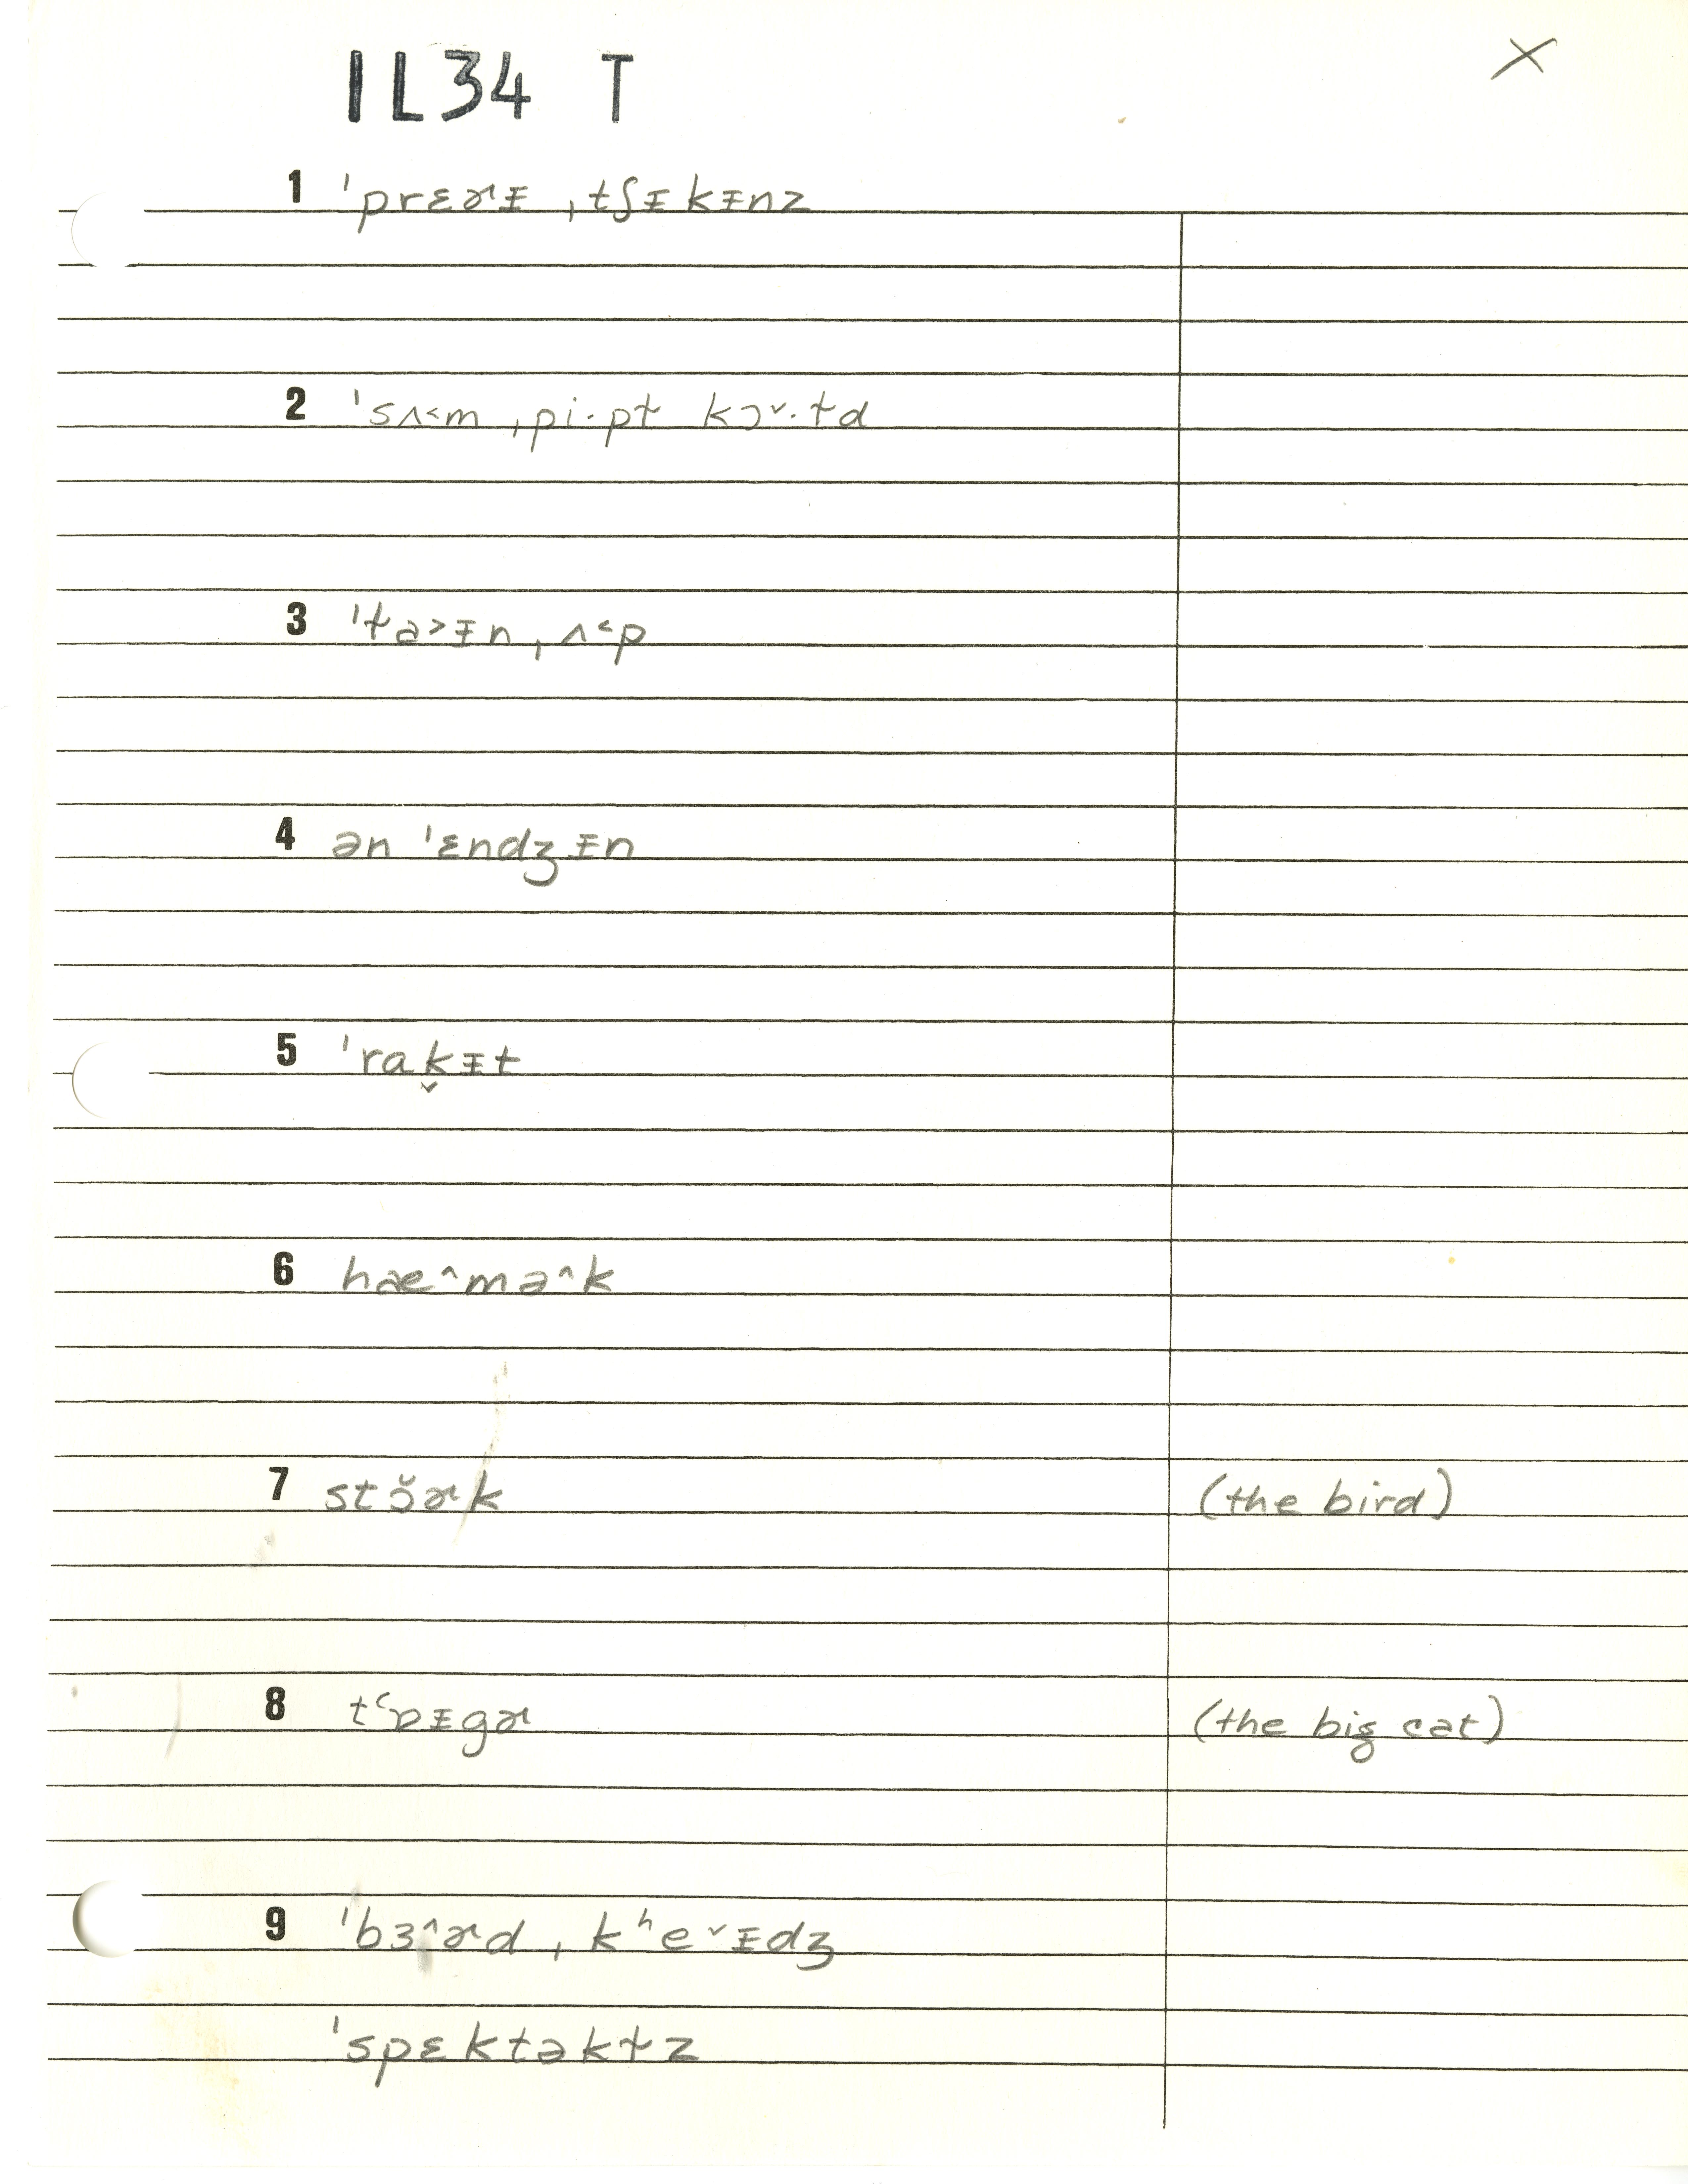 IL34 T X
1 ˈprɛɚᵻ ˌtʃɪkᵻnz
2 ˈsʌ˂m ˌpi·pɫ kɔ˅·ɫd
3 ˈɫa˃ᵻn ˌʌ˂p
4 ən ˈɛndʒᵻn
5 ˈrak̬ᵻt
6 hæ˄mə˄k
7 stɔ̆ɚk (the bird)
8 tʿɒᵻgɚ (the big cat)
9 ˈbɜ˄ɚd ˌkʰe˅ᵻdʒ
ˈspɛktəkɫz